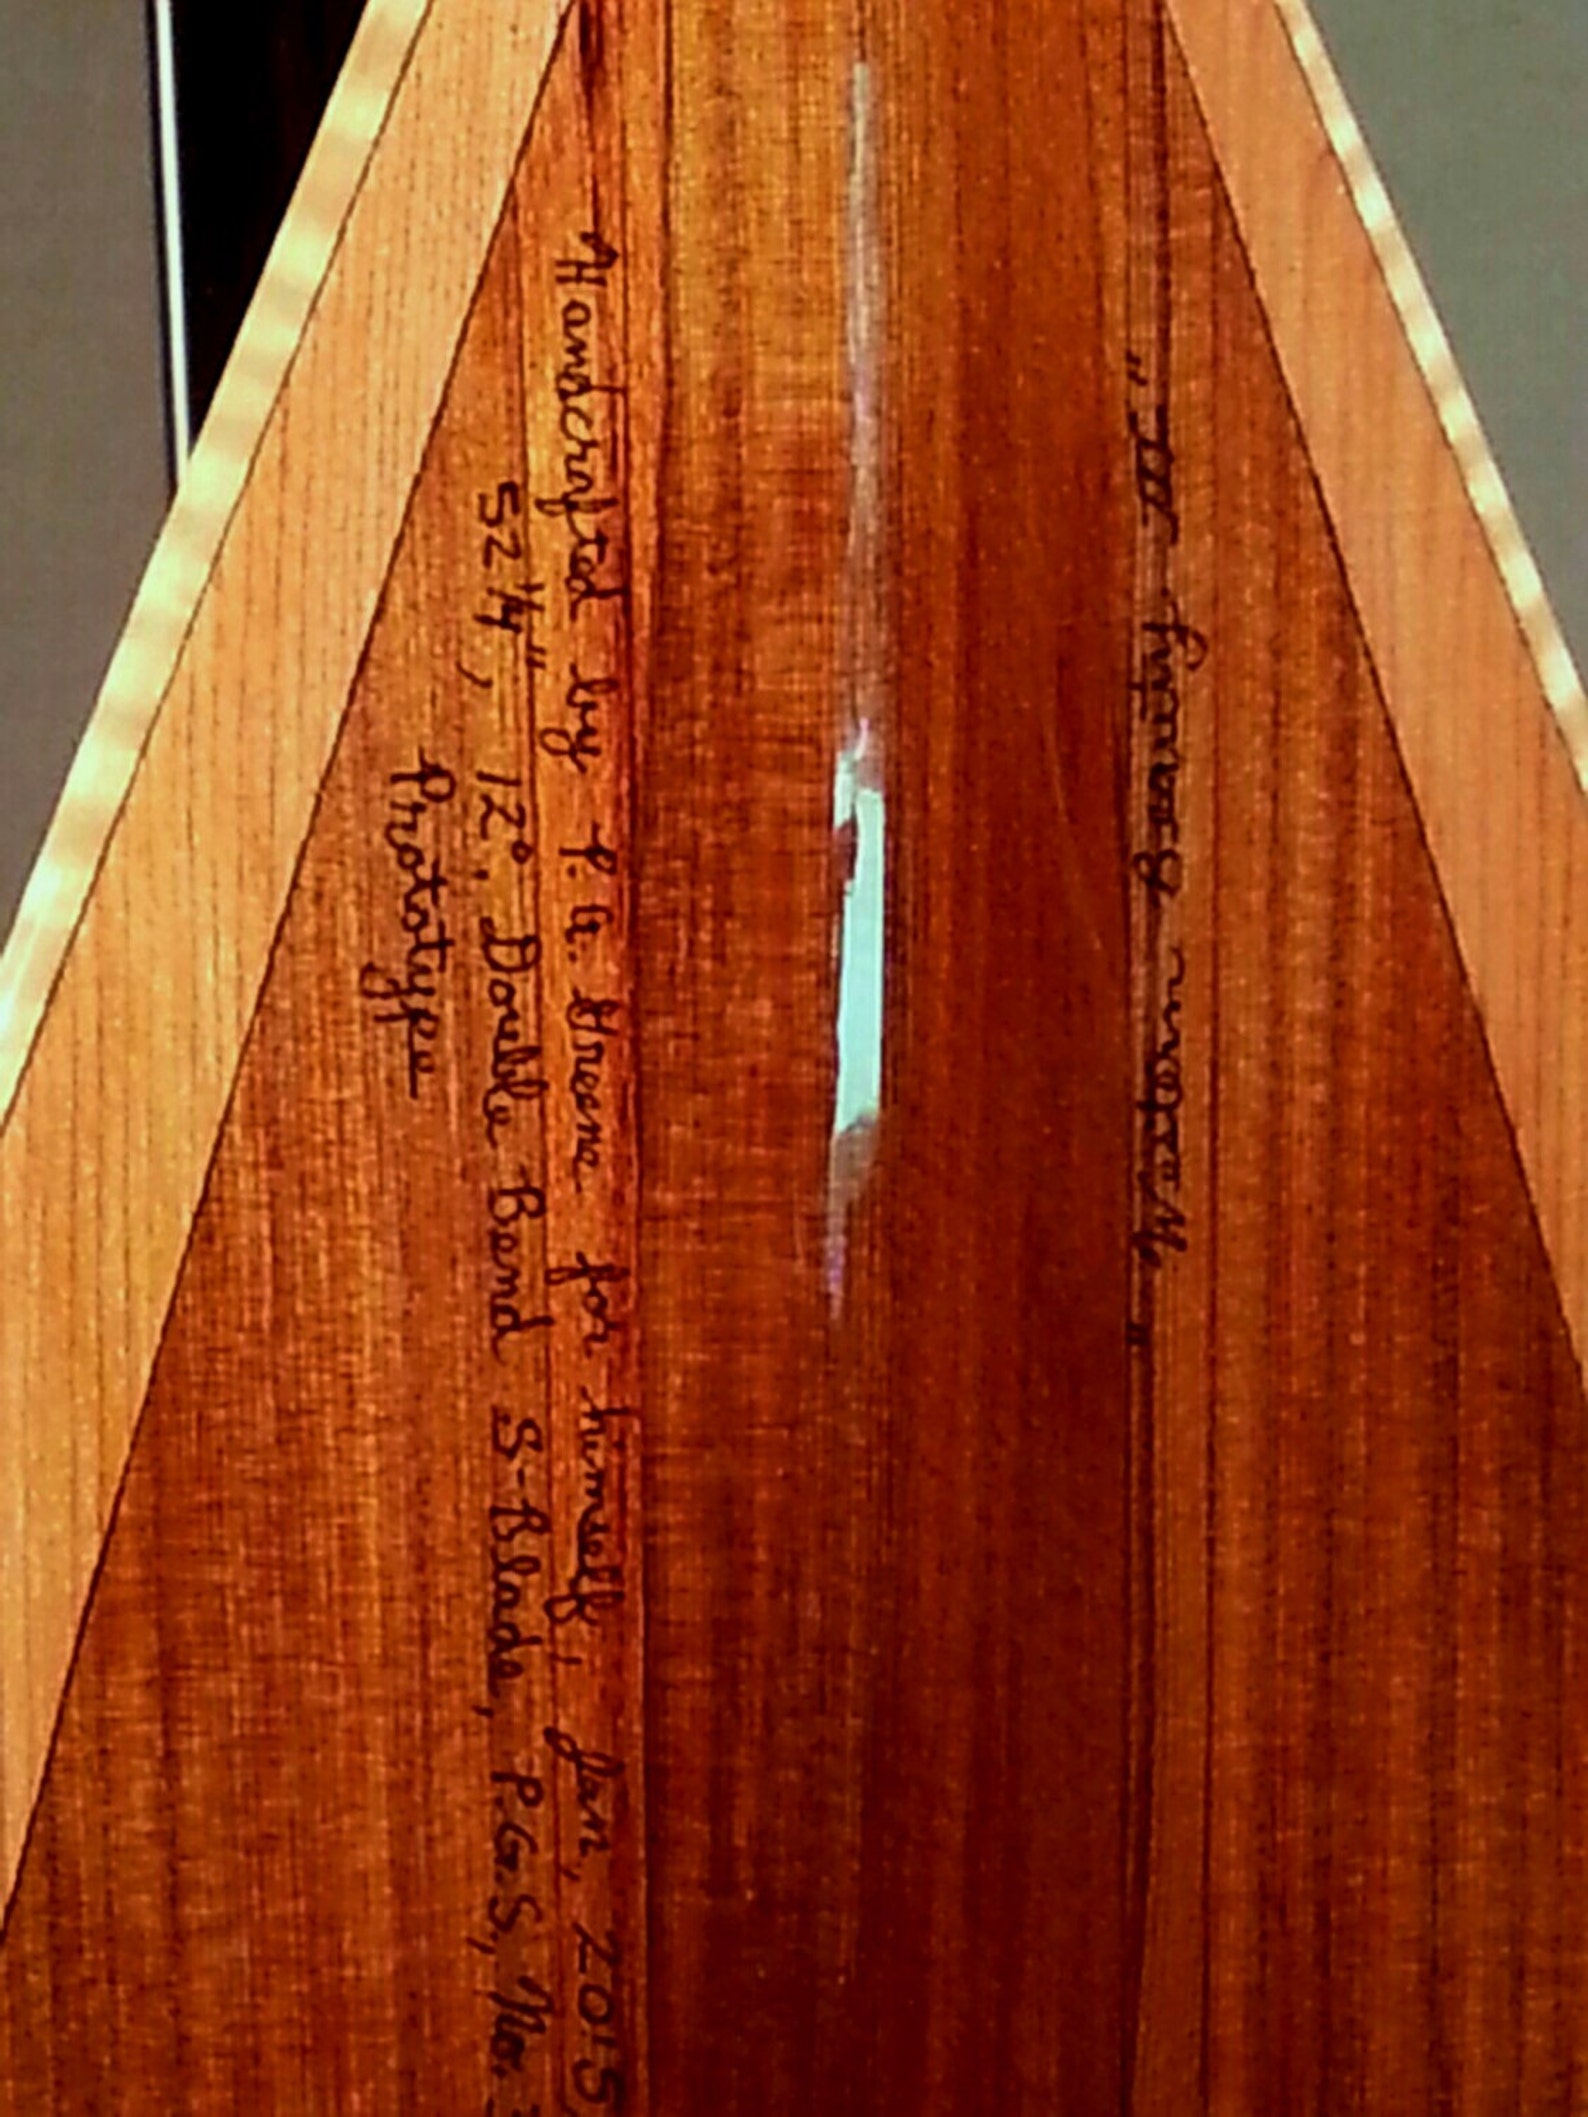 Handcrafted by P. G. Greene for himself, Jan, 2015,
52 1/4", 12°, Double Bend S-Blade, P.G.S, No.
Prototype
"Western Beauty II"